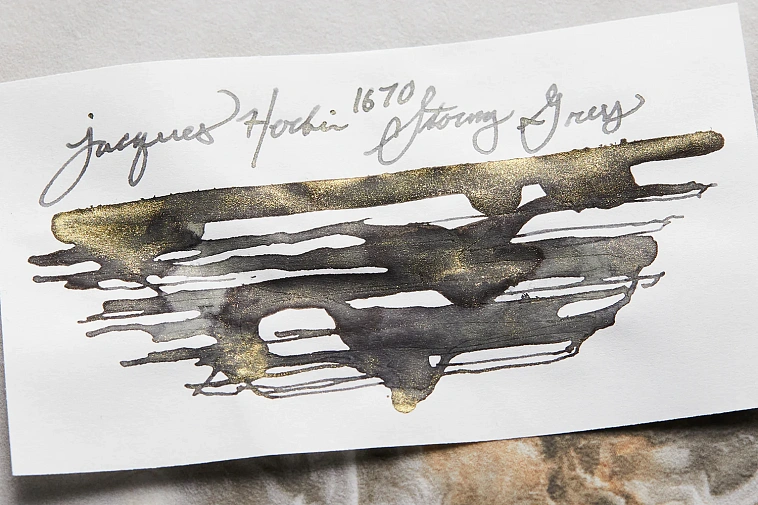 Jacques Herbin 1670 Stormy Grey